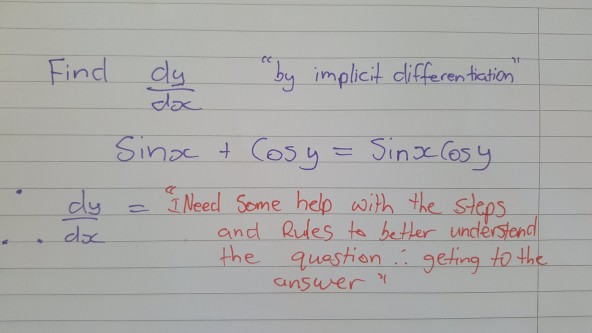 Find dy/dx "by implicit differentiation"
Sinx + Cosy = Sinx Cosy
∴ dy/dx = "I Need Some help with the steps
and Rules to better understand
the question ∴ geting to the
answer"